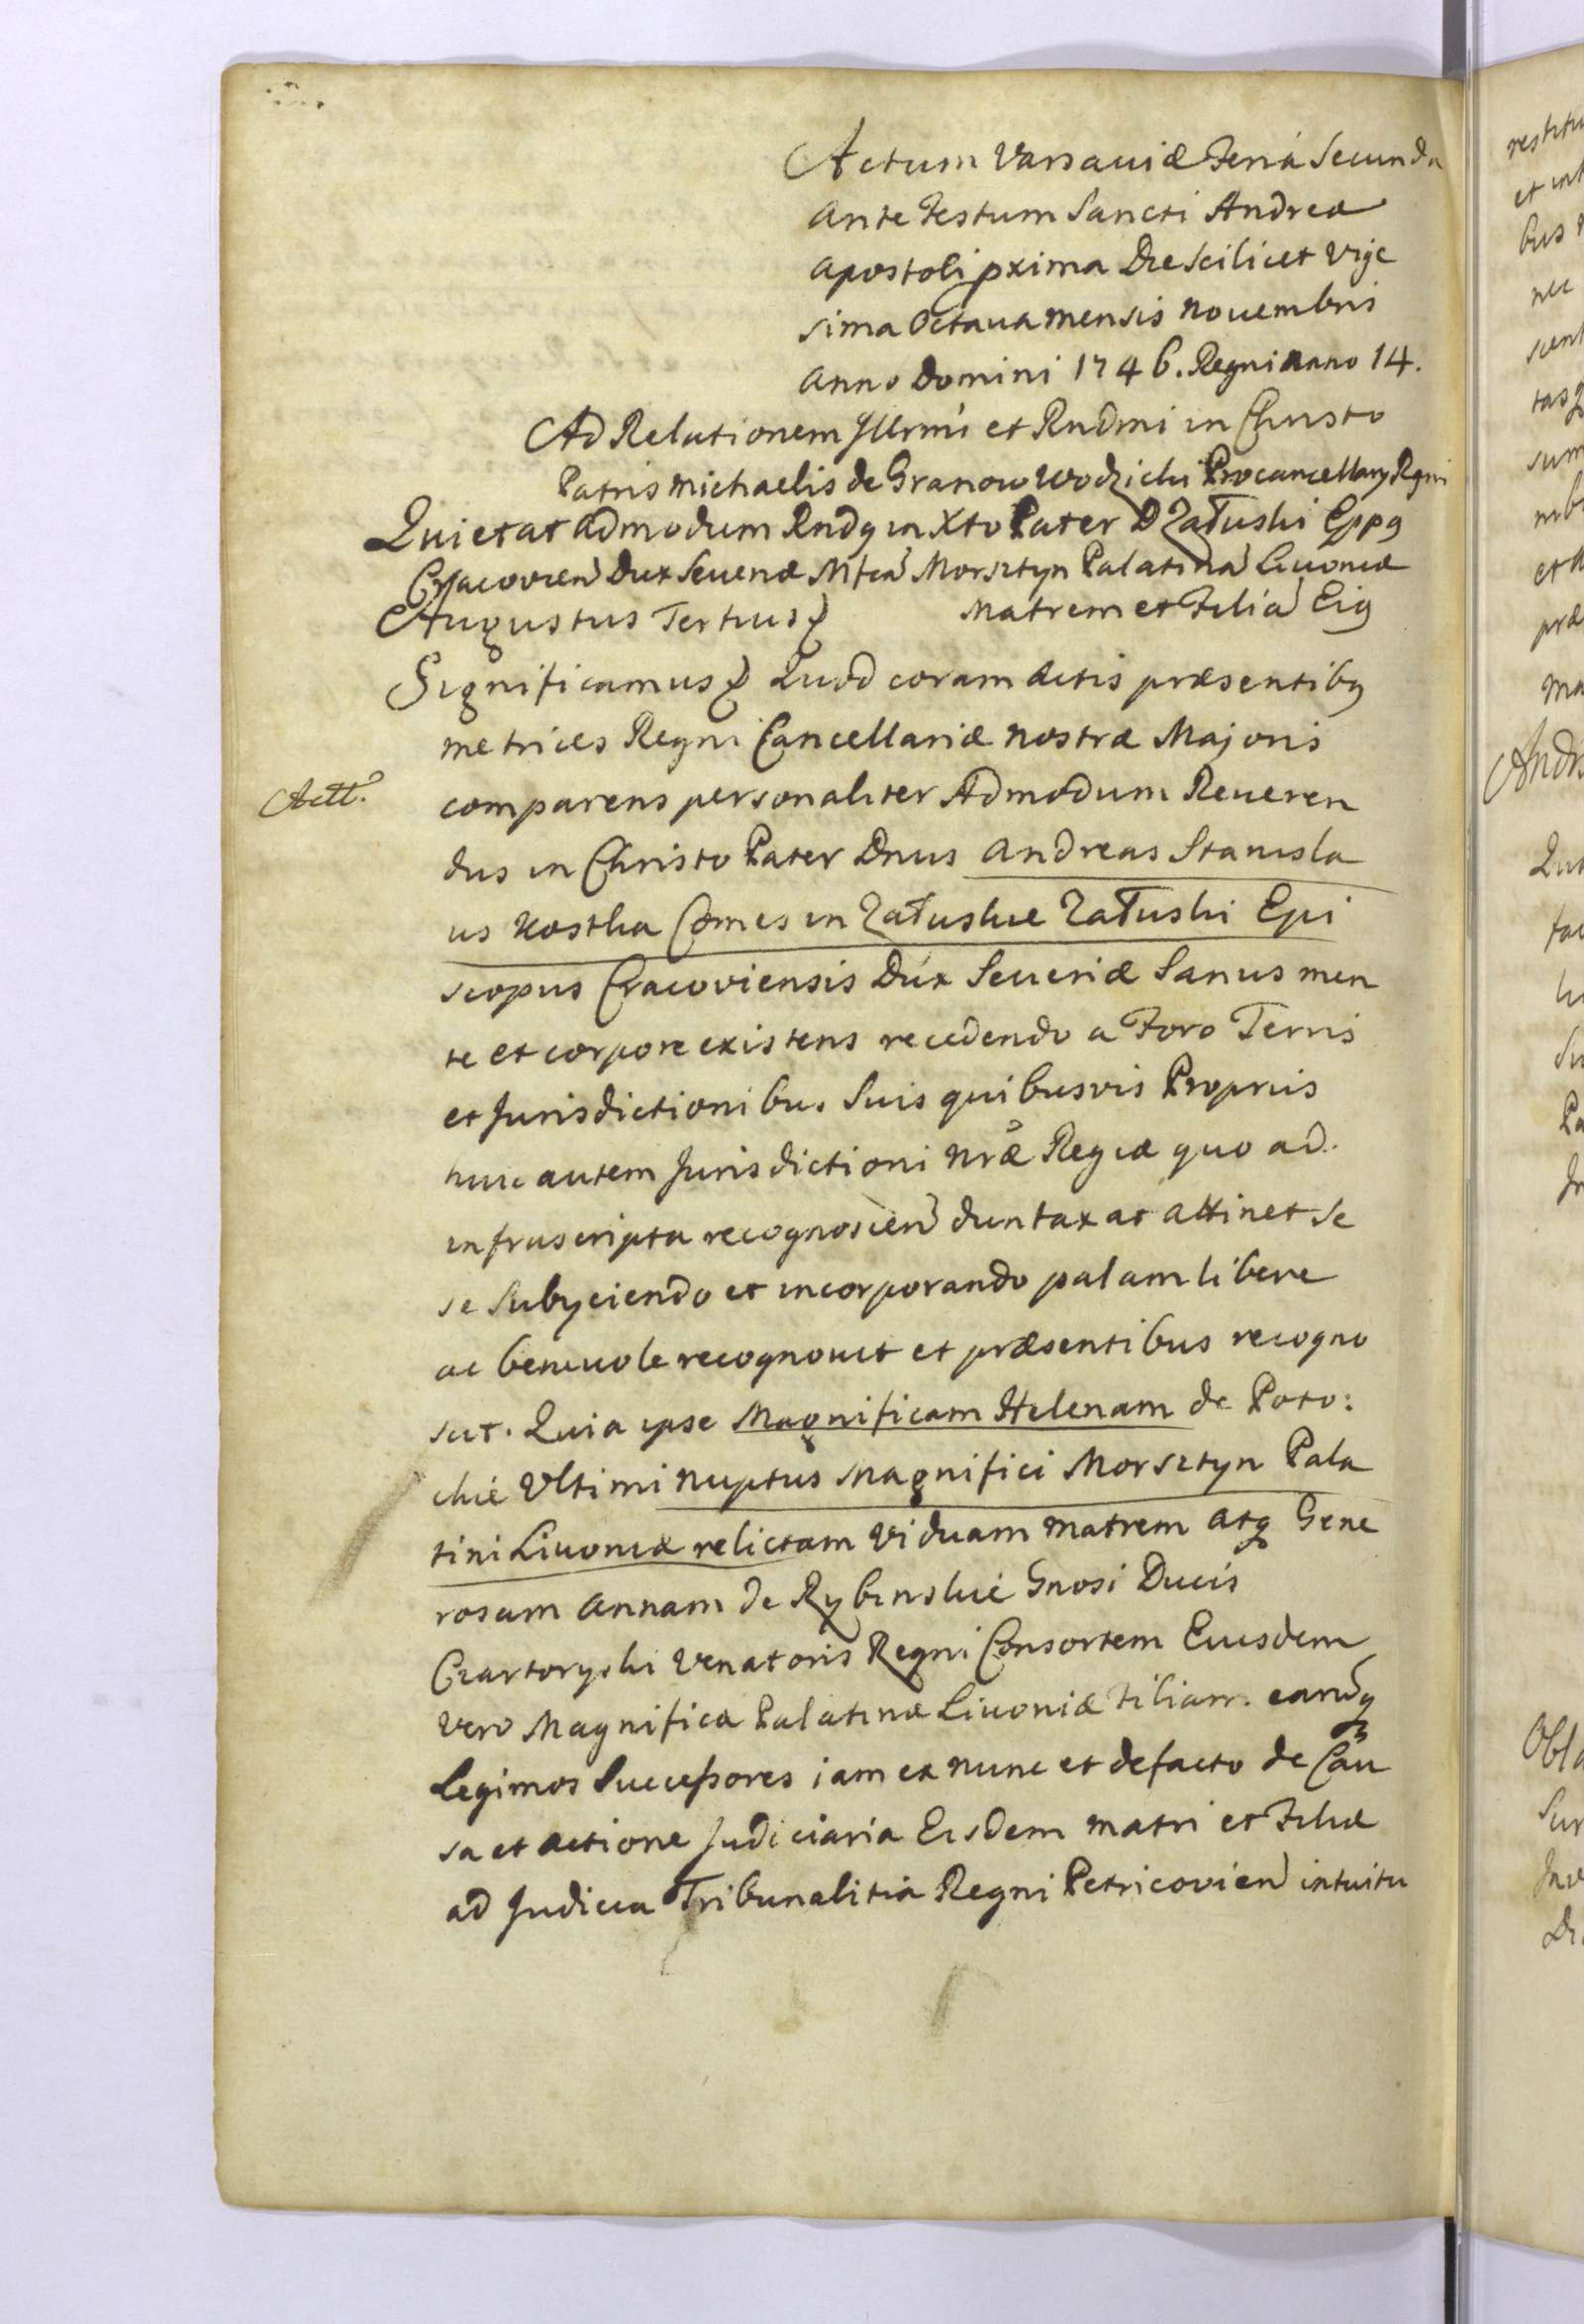 Actum Varsaviæ Feria Secunda
ante Festum Sancti Andreæ
Apostoli pxima Die Scilicet Vige
sima Octaua mensis Nouembris
Anno Domini 1746. Regni anno 14.
Ad Relationem Jllrmi et Rndmi in Christo
Patris Michaelis de Granow Wodzicki Procancellary Regni
Quietat admodum Rndg in Xto Pater D Załuski Eppg
Cracovien Dux Seueriæ Mfca Morsztyn Palatina Livoniæ
Augustus Tertius Matrem et Filia Eig
Significamus Quod coram Actis præsentibg
metrices Regni Cancellariæ nostræ Majoris
Actt.
comparens personaliter Admodum Reueren
dus in Christo Pater Dnus Andreas Stanisla
us Kostka Comes in Załuskie Załuski Epi
scopus Cracoviensis Dux Seueriæ Sanus men
te et corpore existens recedendo a Foro Terris
et Jurisdictionibus Suis quibusvis Propriis
huic autem Jurisdictioni Nræ Regiæ quo ad
infrascripta recognoscen duntaxat attinet se
se Subyciendo et incorporando palam libere
ac beneuole recognouit et præsentibus recogno
scit. Quia ipse Magnificam Helenam de Poto:
ckie Vltimi nuptus Magnifici Morsztyn Pala
tini Liuoniæ relictam Viduam Matrem atq Gene
rosam Annam de Rybinskie Gnosi Ducis
Czartoryski Venatoris Regni Consortem Eiusdem
Vero Magnificæ Palatinæ Livoniæ Filiam earudq
Legimos Successores iam ex nunc et defacto de Cau
sa et actione Judiciaria Eisdem Matri et Filiæ
ad Judicia Tribunalitia Regni Petricovien intuitu